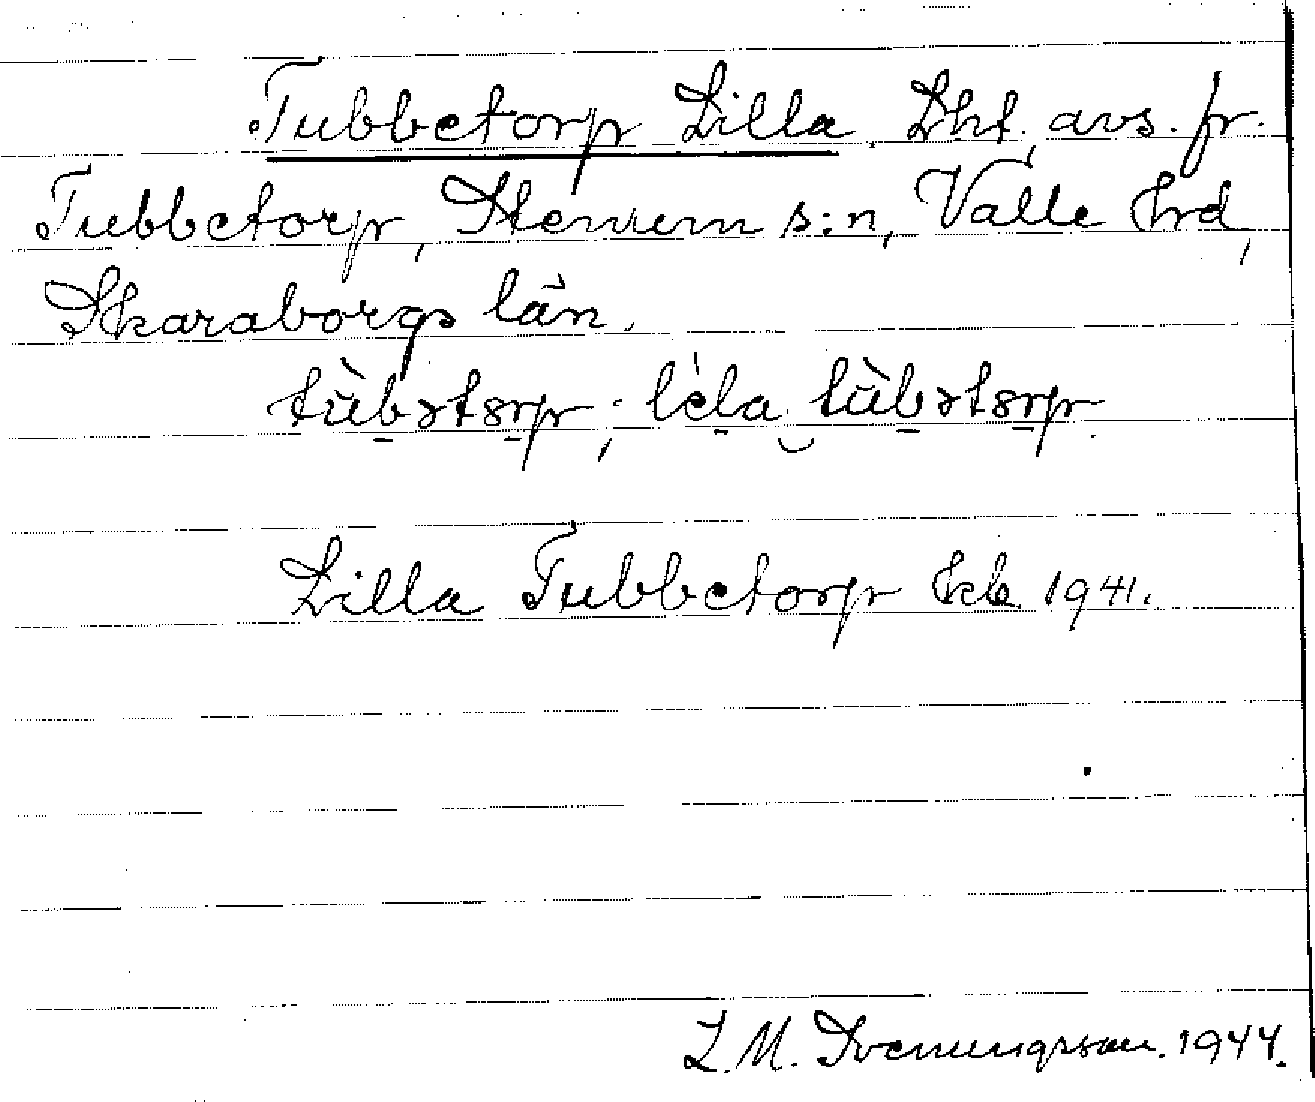 Tubbetorp Lilla, Lht, avs. fr.
Tubbetorp, Stenum s:n, Valle hrd,
Skaraborgs län.
tùbətorp; lela tùbətorp.
Lilla Tubbetorp Ekb. 1941.
L. M. Svenungsson. 1944.